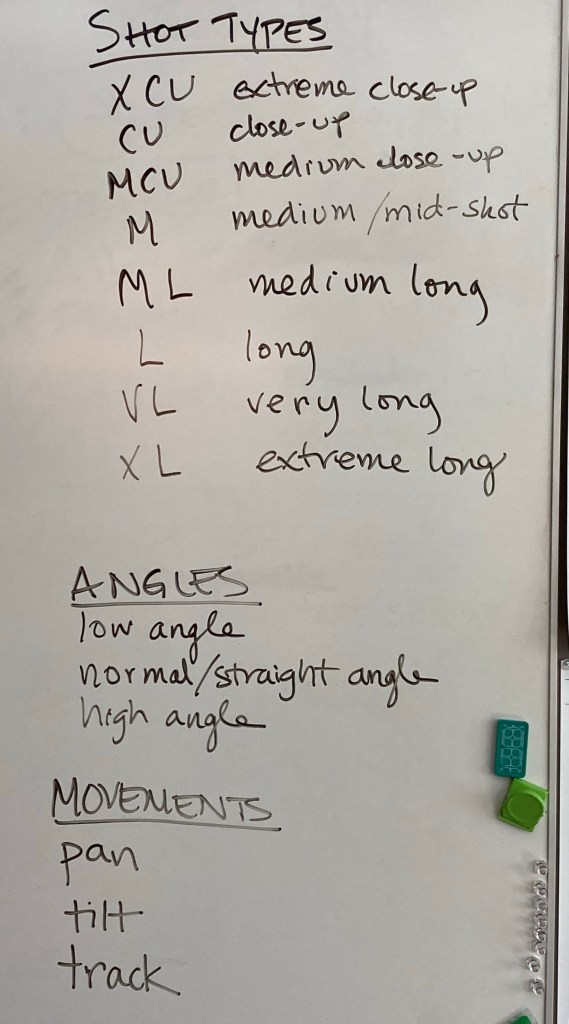 SHOT TYPES
XCU extreme close-up
CU close-up
MCU medium close-up
M medium/mid-shot
ML medium long
L long
VL very long
XL extreme long
ANGLES
low angle
normal/straight angle
high angle
MOVEMENTS
pan
tilt
track